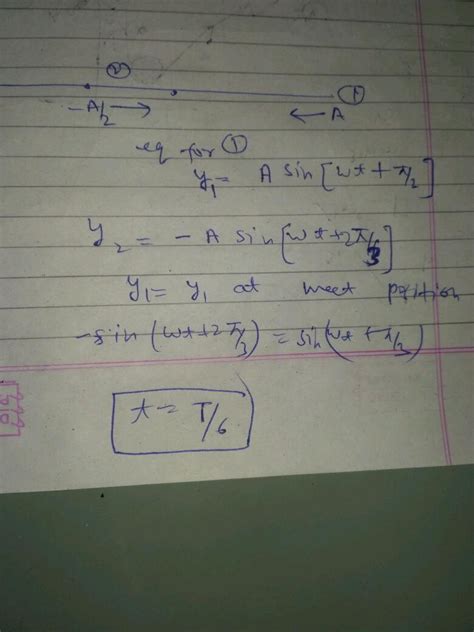 ②
①
-A/2 → ← A
eq for ①
y₁ = A sin [wt + π/2]
y₂ = - A sin [wt + 2π/3]
y₁ = y₁ at meet position
- sin (wt + 2π/3) = sin (wt + π/3)
t = T/6